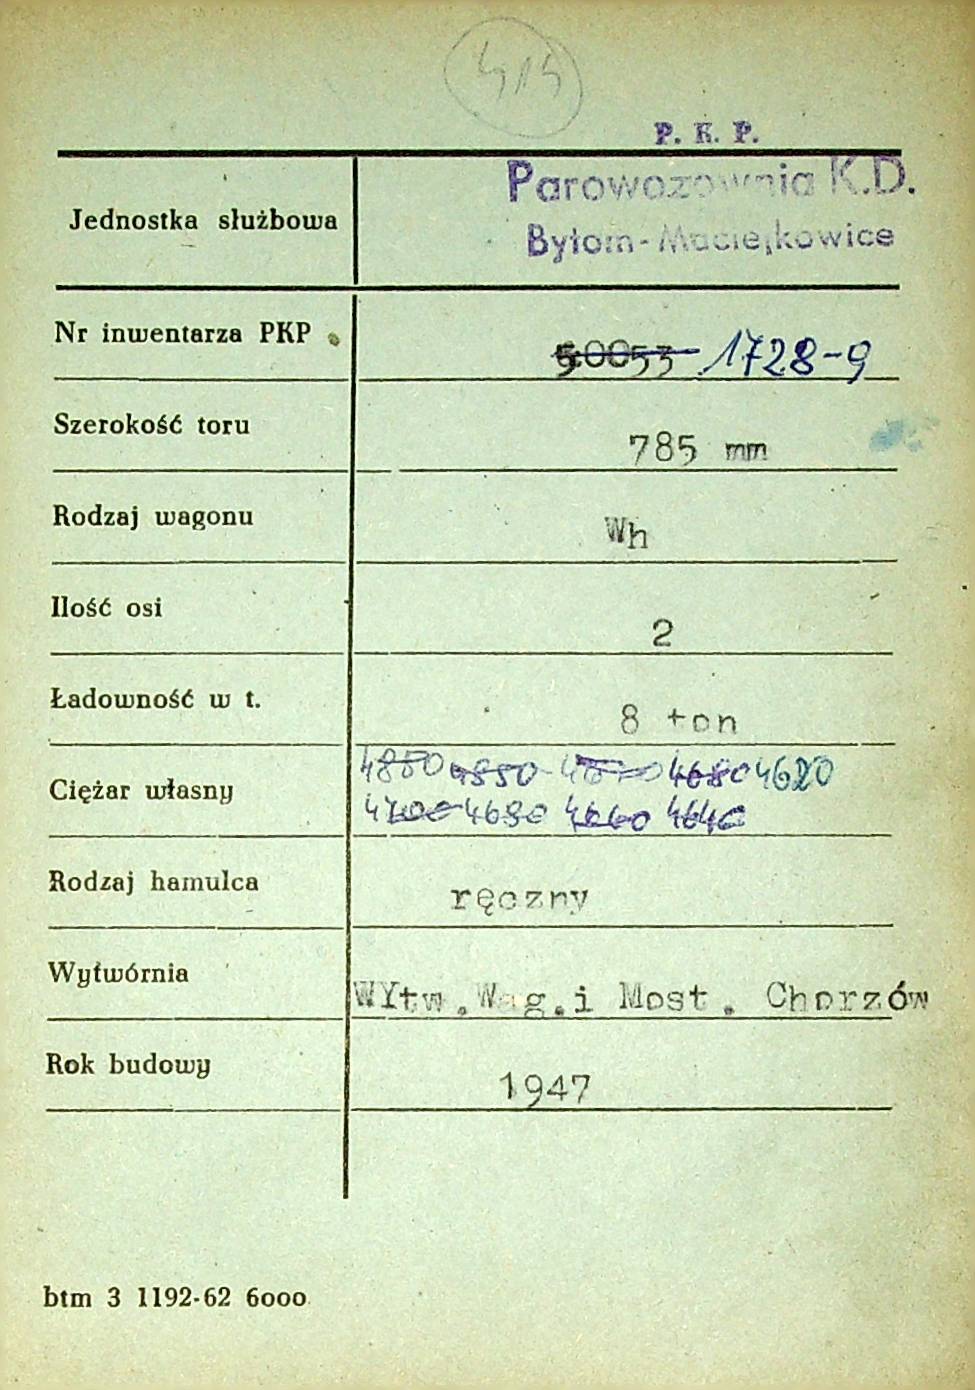 P. K. P.
Jednostka służbowa Parowozownia K.D.
Bytom-Maciejkowice
Nr inwentarza PKP 50053 1728-9
Szerokość toru 785 mm
Rodzaj wagonu Wh
Ilość osi 2
Ładowność w t. 8 ton
Ciężar własny 4850 4850 4680 4620
4700 4680 4660 4640
Rodzaj hamulca ręczny
Wytwórnia WYtw.Wag.i Most. Chorzów
Rok budowy 1947
btm 3 1192-62 6000